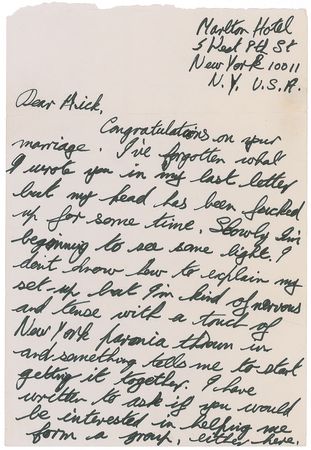 Marlton Hotel
5 West 8th St
New York 10011
N.Y. U.S.A.
Dear Mick,
Congratulations on your
marriage. I've forgotten what
I wrote you in my last letter
but my head has been fucked
up for some time. Slowly I'm
beginning to see some light. I
don't know how to explain my
set up but I'm kind of nervous
and tense with a touch of
New York paronia thrown in
and something tells me to start
getting it together. I have
written to ask if you would
be interested in helping me
form a group, either here,